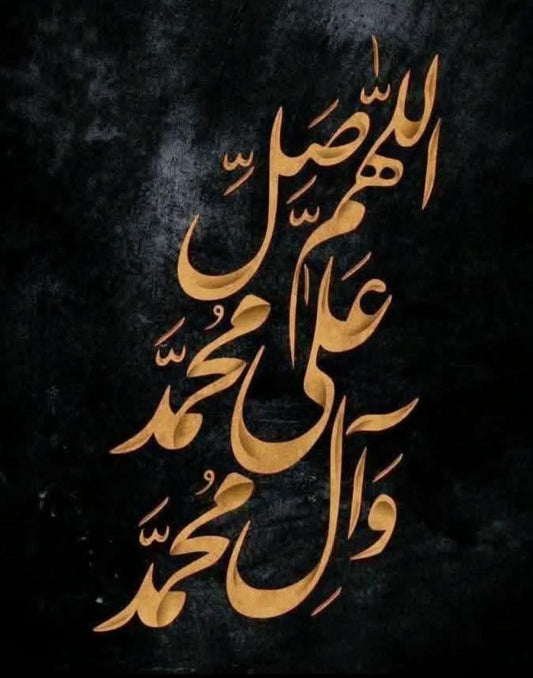 اللّٰهُمَّ صَلِّ
عَلٰى مُحَمَّد
وَآلِ مُحَمَّد